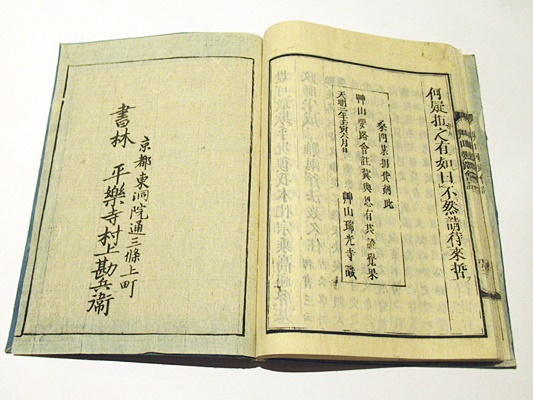 何疑拒之有如曰不然請待來哲
桑門某捐貲刻此
艸山要路會註冀與恩有共證覺果
天明二年壬寅六月日
艸山瑞光寺識
京都東洞院通三條上町
書林 平樂寺村上勘兵衛